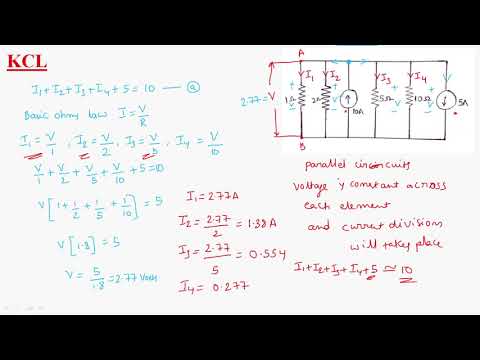 KCL
I1+I2+I3+I4+5=10 — ⓐ
Basic ohms law I = V/R
I1 = V/1 , I2 = V/2, I3 = V/5 , I4 = V/10
V/1 + V/2 + V/5 + V/10 + 5 = 10
V[1 + 1/2 + 1/5 + 1/10] = 5
V[1.8] = 5
V = 5/1.8 = 2.77 Volts
I1 = 2.77A
I2 = 2.77/2 = 1.38A
I3 = 2.77/5 = 0.554
I4 = 0.277
A
I1 I2 I3 I4
2.77=V
+ + + +
1Ω 2Ω 10A 5Ω 10Ω 5A
V V V
- - - -
B
parallel circuits
voltage is constant across
each element
and current divisions
will takes place
I1+I2+I3+I4+5 ≈ 10